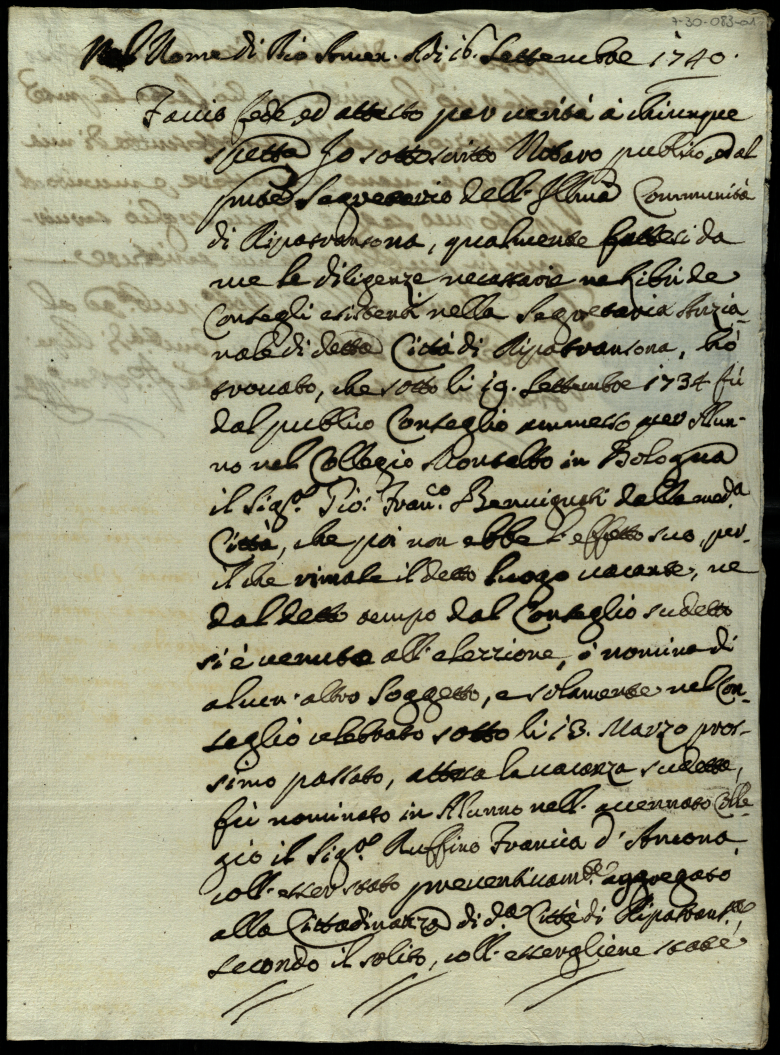 7-30-083-01
Nel Nome di Dio Amen. Adi 16. Settembre 1740.
Faccio fede ed attesto per verità à chiunque
spetta Io sottoscritto Notaro publico, ed al
pnte Segretario dell' Illma Communità
di Ripatransona, qualmente fattesi da
me le diligenze necessarie ne libri de
Consegli esistenti nella Segretaria Priorale
di detta Città di Ripatransona, hò
trovato, che sotto li 19. Settembre 1734 fù
dal publico Conseglio ammesso per Alun-
no nel Collegio Montalto in Bologna
il Sigre Gio: Franco Benvignati della meda
Città, che poi non ebbe l'effetto suo, per-
il che rimase il detto luogo vacante, ne
dal detto tempo dal Conseglio sudetto
si è venuto all' elezzione, ò nomina di
alcun' altro Soggetto, e solamente nel Con-
seglio celebrato sotto li 13. Marzo pros-
simo passato, attesa la vacanza sudetta,
fù nominato in Alunno nell' accennato Colle-
gio il Sigre Ruffino Francia d'Ancona
coll' esser stato preventivamte aggregato
alla Cittadinanza di da Città di Ripatransa
secondo il solito, coll' essergliene state